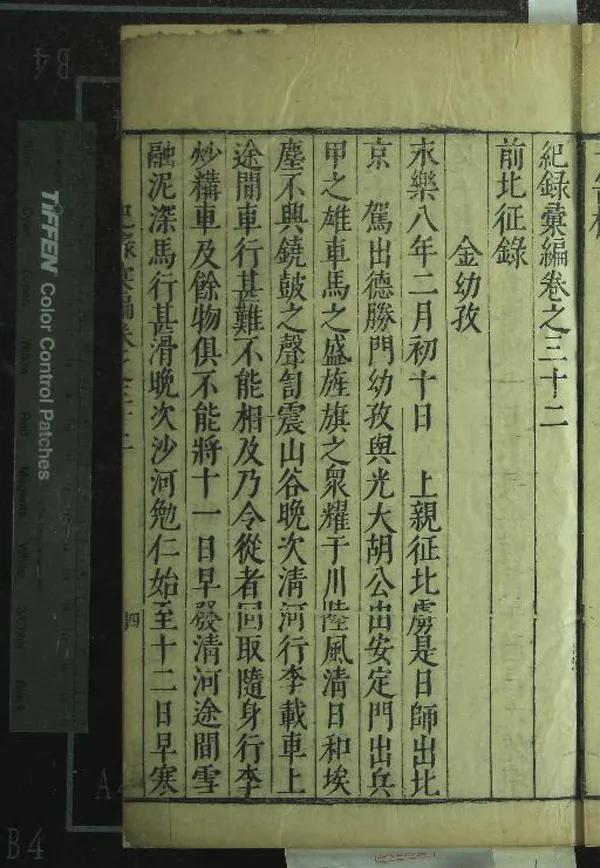 紀錄彙編卷之三十二
前北征錄
金幼孜
永樂八年二月初十日 上親征北虜是日師出北
京 駕出德勝門幼孜與光大胡公由安定門出兵
甲之雄車馬之盛旌旗之眾耀于川陸風清日和埃
塵不興鐃鼓之聲訇震山谷晚次清河行李載車上
途間車行甚難不能相及乃令從者回取隨身行李
炒糒車及餘物俱不能將十一日早發清河途間雪
融泥深馬行甚滑晚次沙河勉仁始至十二日早寒
四
TIFFEN Color Control Patches
B4
B4
A